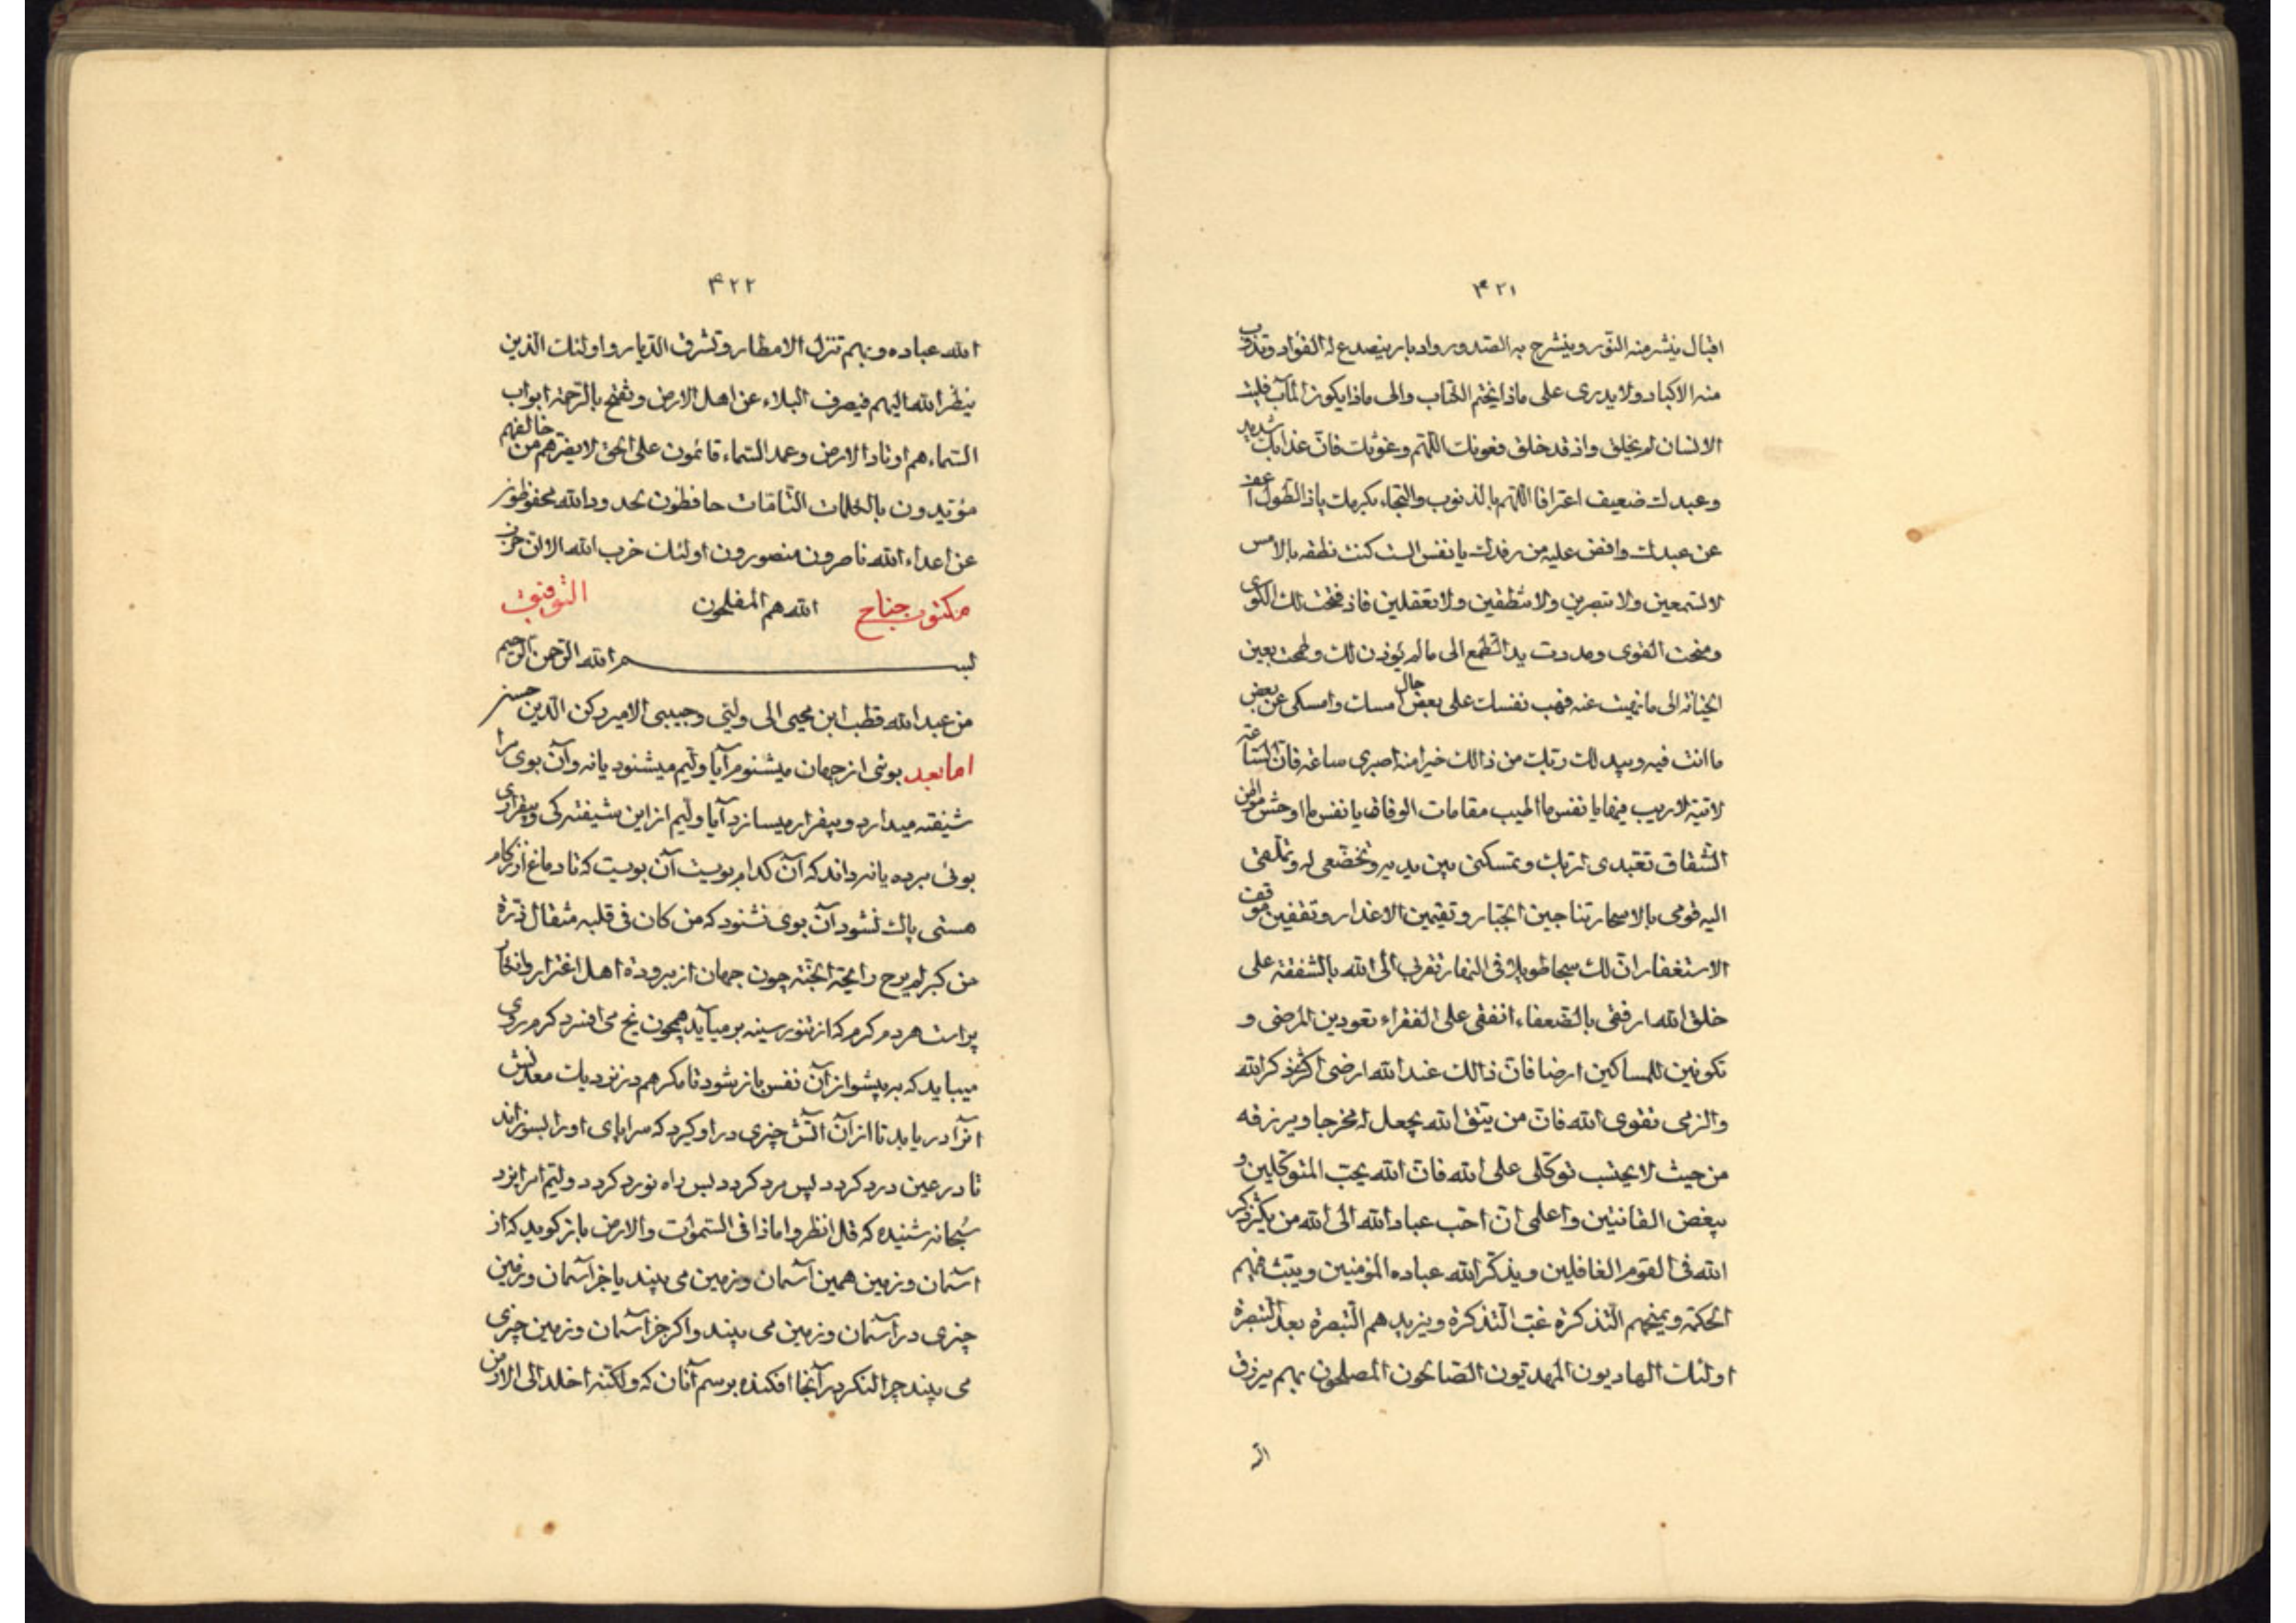 ۴۲۱
اقبال ینشر منه النور وینشرح به الصدور وادبار ینصدع له الفؤاد وتذوب
منه الاکباد ولا یدری علی ماذا یختم الکتاب والی ماذا یکون المآب فلیت
الانسان لم یخلق واذ قد خلق فعونك اللهم وغوثك فان عذابك شدید
وعبدك ضعیف اعترافا اللهم بالذنوب والتجاء بکرمك یا ذا الطول اعف
عن عبدك وافض علیه من رفدك یا نفس الست کنت نطفه بالامس
لا تسمعین ولا تبصرین ولا تنطقین ولا تعقلین فاذ فتحت لك الکوی
ومنحت القوی ومددت ید الطمع الی ما لم یؤذن لك وطمحت بعین
الخیانه الی ما نهیت عنه فهب نفسك علی بعض حال امسك وامسکی عن بعض
ما انت فیه ویبدلك ربك من ذالك خیرا منه اصبری ساعه فان الساعة
لاتیة لا ریب فیها یا نفس ما اطیب مقامات الوفاق یا نفس ما اوحش مواطن
الشقاق تعبدی لربك وتمسکنی بین یدیه وتخضعی له وتملقی
الیه قومی بالاسحار تناجین الجبار وتقیمین الاعذار وتقفین موقف
الاستغفار ان لك سبحا طویلا فی النهار تقربی الی الله بالشفقه علی
خلق الله ارفقی بالضعفاء انفقی علی الفقراء تعودین المرضی و
تکونین للمساکین ارضا فان ذالك عند الله ارضی اکثر ذکر الله
والزمی تقوی الله فان من یتق الله یجعل له مخرجا ویرزقه
من حیث لا یحتسب توکلی علی الله فان الله یحب المتوکلین و
یبغض القانتین واعلمی ان احب عباد الله الی الله من یکثر ذکر
الله فی القوم الغافلین ویذکر الله عباده المؤمنین ویبث فیهم
الحکمة ویمنحهم التذکرة غب التذکرة ویزیدهم التبصرة بعد التبصرة
اولئك الهادیون المهدیون الصالحون المصلحون بهم یرزق
الله
۴۲۲
الله عباده وبهم تنزل الامطار وتشرق الدیار واولئك الذین
ینظر الله الیهم فیصرف البلاء عن اهل الارض وتفتح بالرحمة ابواب
السماء هم اوتاد الارض وعمد السماء قائمون علی الحق لا یضرهم من خالفهم
مؤیدون بالکلمات التامات حافظون لحدود الله محفوظون
عن اعداء الله ناصرون منصورون اولئك حزب الله الا ان حزب
الله هم المفلحون
مکتوب جناح التوفیق
بسم الله الرحمن الرحیم
من عبد الله قطب ابن محیی الی ولیی وحبیبی الامیر رکن الدین حسن
اما بعد بوئی از جهان میشنوم آیا ولیم میشنود یا نه وآن بوی مرا
شیفته میدارد وبیقرار میسازد آیا ولیم از این شیفته کی وبیقراری
بوئی برده یا نه داند که آن کدام بویست آن بویست که تا دماغ از زکام
هستی پاك نشود آن بوی نشنود که من کان فی قلبه مثقال ذرة
من کبر لم یرح رایحة الجنة چون جهان از برودة اهل اغترار وانکار
پر است هر دم کرم که از تنور سینه بر میآید همچون یخ می افسرد کرم روی
میباید که به پیشواز آن نفس باز شود تا مکر هم در نزدیك معدنش
آنرا دریابد تا از آن آتش چیزی در او کیرد که سراپای او را بسوزاند
تا در عین درد کردد پس مرد کردد پس راه نورد کردد ولیم امر ایزد
سبحانه شنیده که قل انظروا ماذا فی السموات والارض باز کوید که از
آسمان وزمین همین آسمان وزمین می بیند یا جز آسمان وزمین
چیزی در آسمان وزمین می بیند واکر جز آسمان وزمین چیزی
می بیند چرا لنکر در آنجا افکنده برسم آنان که ولکنه اخلد الی الارض